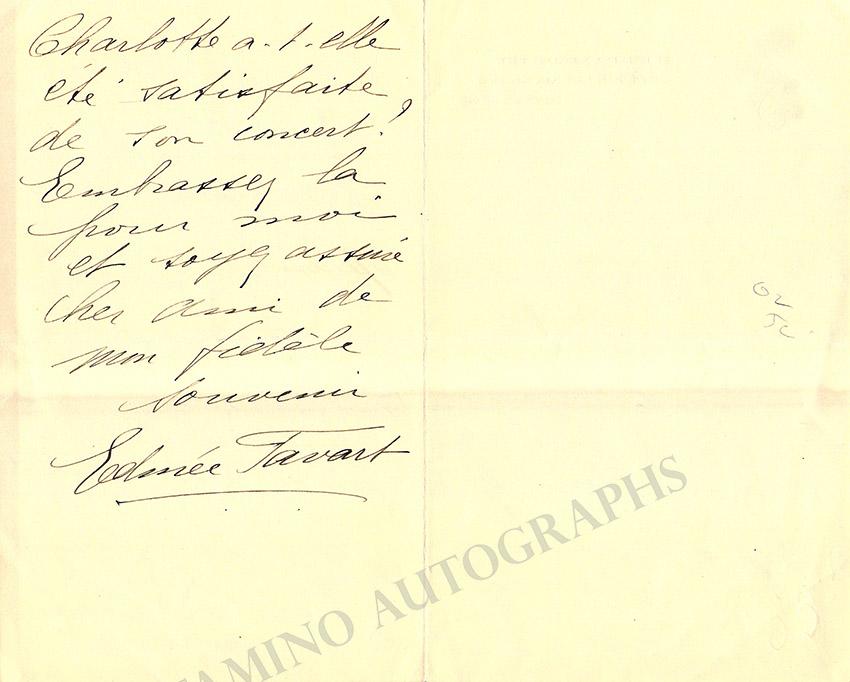 Charlotte a-t-elle
été satisfaite
de son concert?
Embrassez la
pour moi
et soyez assuré
cher ami de
mon fidèle
souvenir
Edmée Favart
TAMINO AUTOGRAPHS